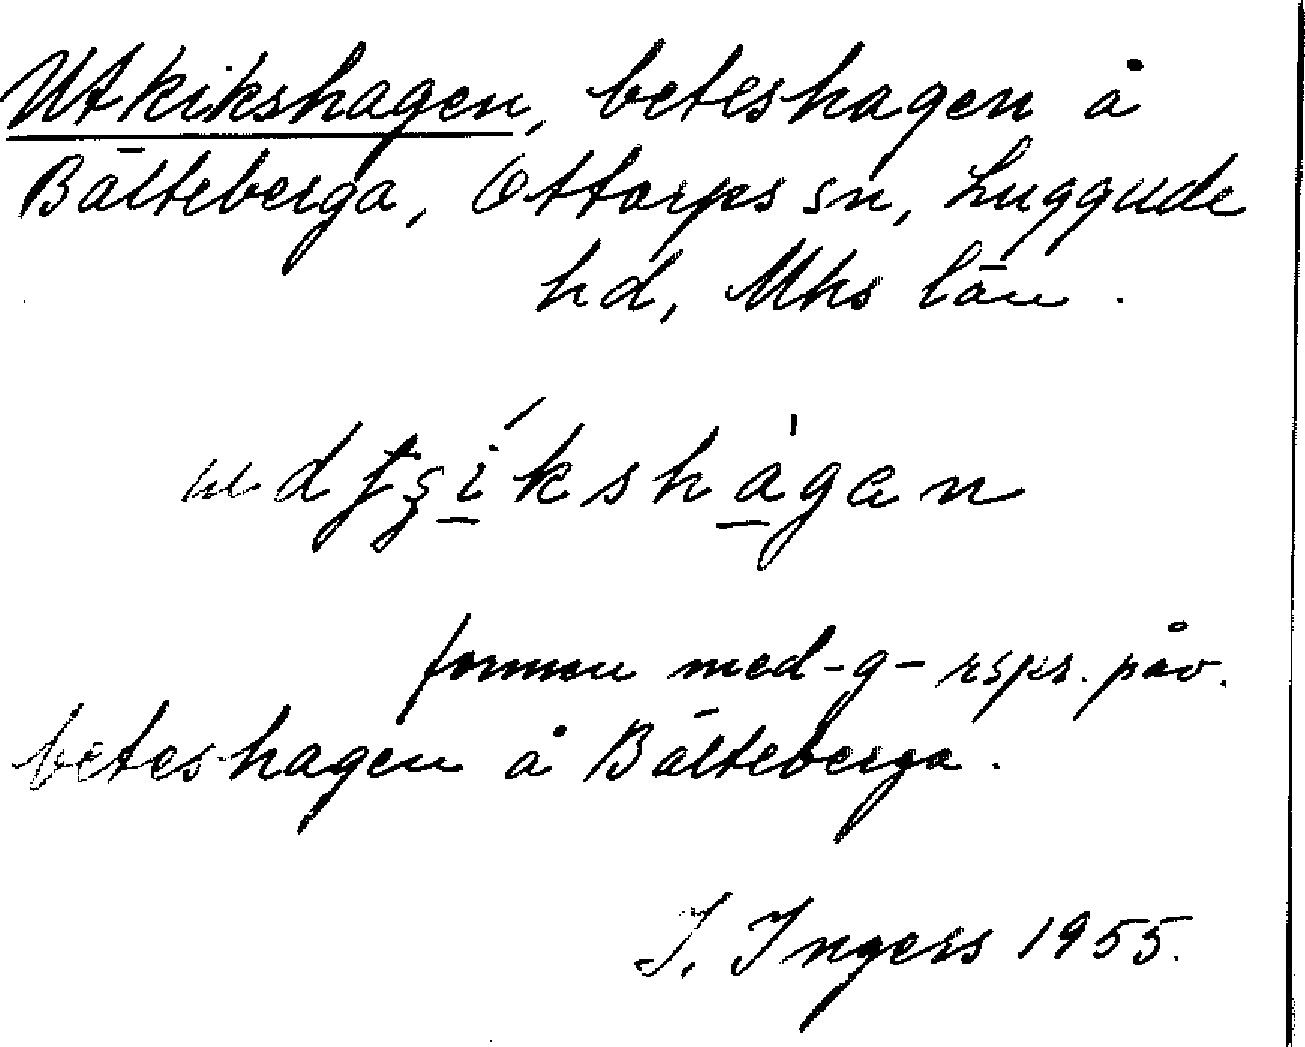 Utkikshagen, beteshagen å
Bälteberga, Ottarps sn, Luggude
hd, Mhs län.
formen med -g- rspr. påv.
beteshagen å Bälteberga.
I. Ingers 1955.